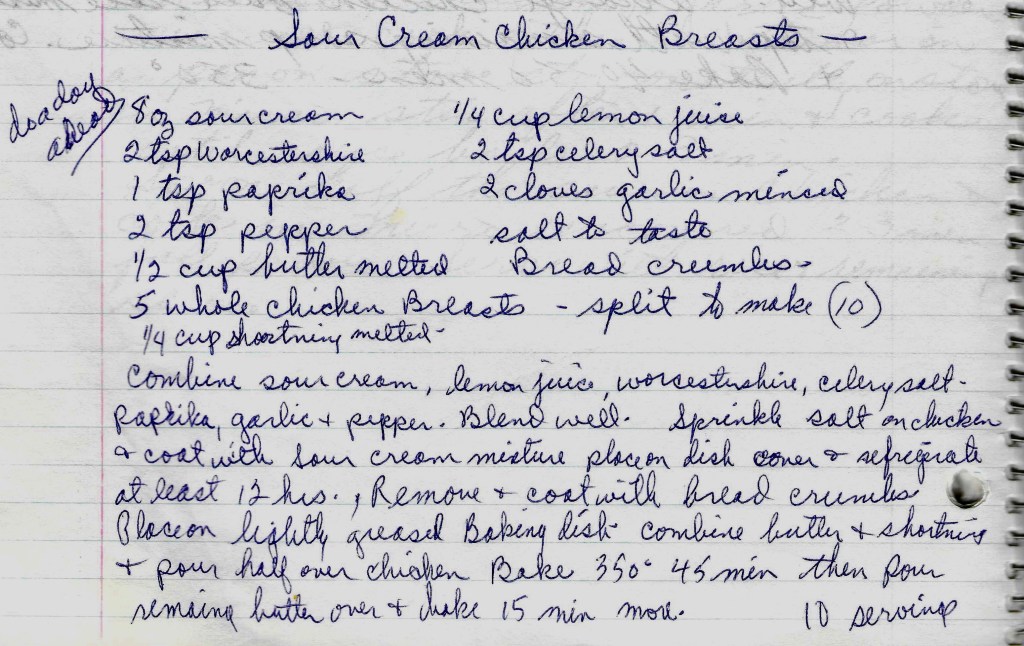 — Sour Cream Chicken Breasts —
do a day
ahead
8 oz sour cream 1/4 cup lemon juice
2 tsp Worcestershire 2 tsp celery salt
1 tsp paprika 2 cloves garlic minced
2 tsp pepper salt to taste
1/2 cup butter melted Bread crumbs-
5 whole chicken Breasts - split to make (10)
1/4 cup shortning melted-
Combine sour cream, lemon juice, worcestershire, celery salt-
paprika, garlic + pepper. Blend well. Sprinkle salt on chicken
+ coat with sour cream mixture place on dish cover + refrigerate
at least 12 hrs., Remove + coat with bread crumbs
Place on lightly greased Baking dish- combine butter + shortning
+ pour half over chicken Bake 350° 45 min then pour
remaing butter over + bake 15 min more. 10 serving